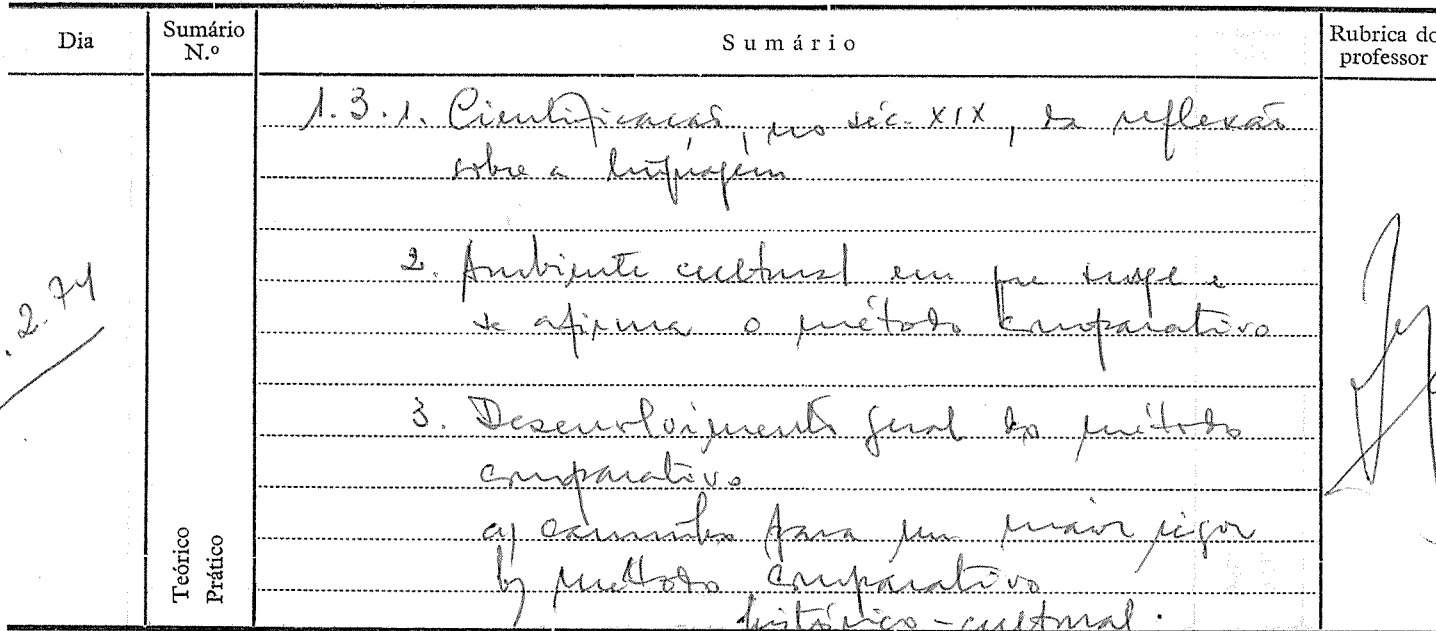 Dia
Sumário
N.º
Sumário
Rubrica do
professor
1.3.1. Cientificação, no séc. XIX, da reflexão
sobre a linguagem
2. Ambiente cultural em que surge e
se afirma o método comparativo
. 2. 74
3. Desenvolvimento geral do método
comparativo
a) caminho para um maior rigor
b) método comparativo
histórico-cultural.
Teórico
Prático